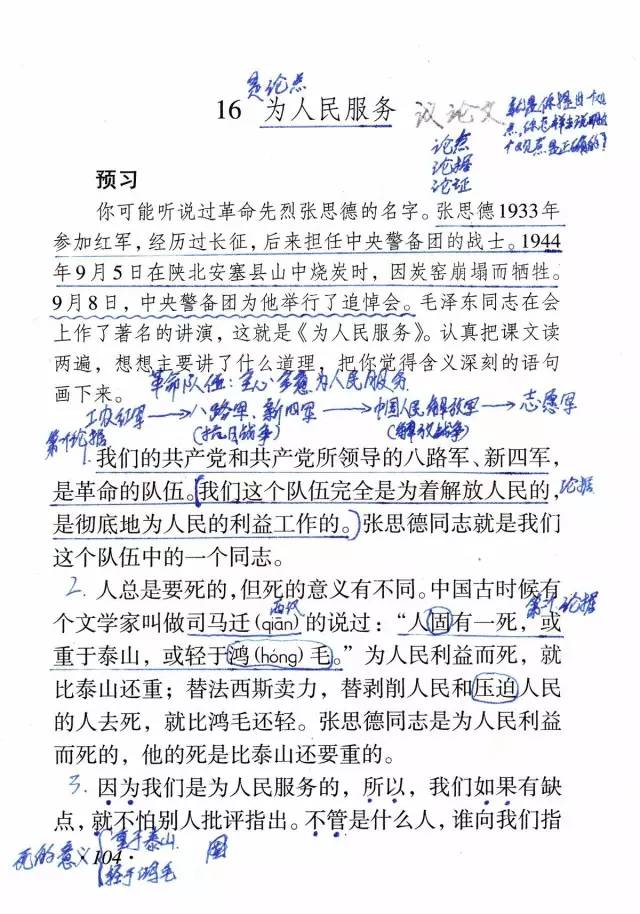 是论点
16 为人民服务 议论文
论点
论据
论证
就是你提出个观
点,你怎样去说明这
个观点是正确的?
预习
你可能听说过革命先烈张思德的名字。张思德1933年
参加红军,经历过长征,后来担任中央警备团的战士。1944
年9月5日在陕北安塞县山中烧炭时,因炭窑崩塌而牺牲。
9月8日,中央警备团为他举行了追悼会。毛泽东同志在会
上作了著名的讲演,这就是《为人民服务》。认真把课文读
两遍,想想主要讲了什么道理,把你觉得含义深刻的语句
画下来。
革命队伍:全心全意为人民服务
工农红军→八路军、新四军→中国人民解放军→志愿军
(抗日战争) (解放战争)
第1个论据
1.我们的共产党和共产党所领导的八路军、新四军,
是革命的队伍。我们这个队伍完全是为着解放人民的,
论据
是彻底地为人民的利益工作的。张思德同志就是我们
这个队伍中的一个同志。
2.人总是要死的,但死的意义有不同。中国古时候有
西汉
第2个论据
个文学家叫做司马迁(qiān)的说过:“人固有一死,或
重于泰山,或轻于鸿(hóng)毛。”为人民利益而死,就
比泰山还重;替法西斯卖力,替剥削人民和压迫人民
的人去死,就比鸿毛还轻。张思德同志是为人民利益
而死的,他的死是比泰山还要重的。
3.因为我们是为人民服务的,所以,我们如果有缺
点,就不怕别人批评指出。不管是什么人,谁向我们指
死的意义
重于泰山
轻于鸿毛
·104·